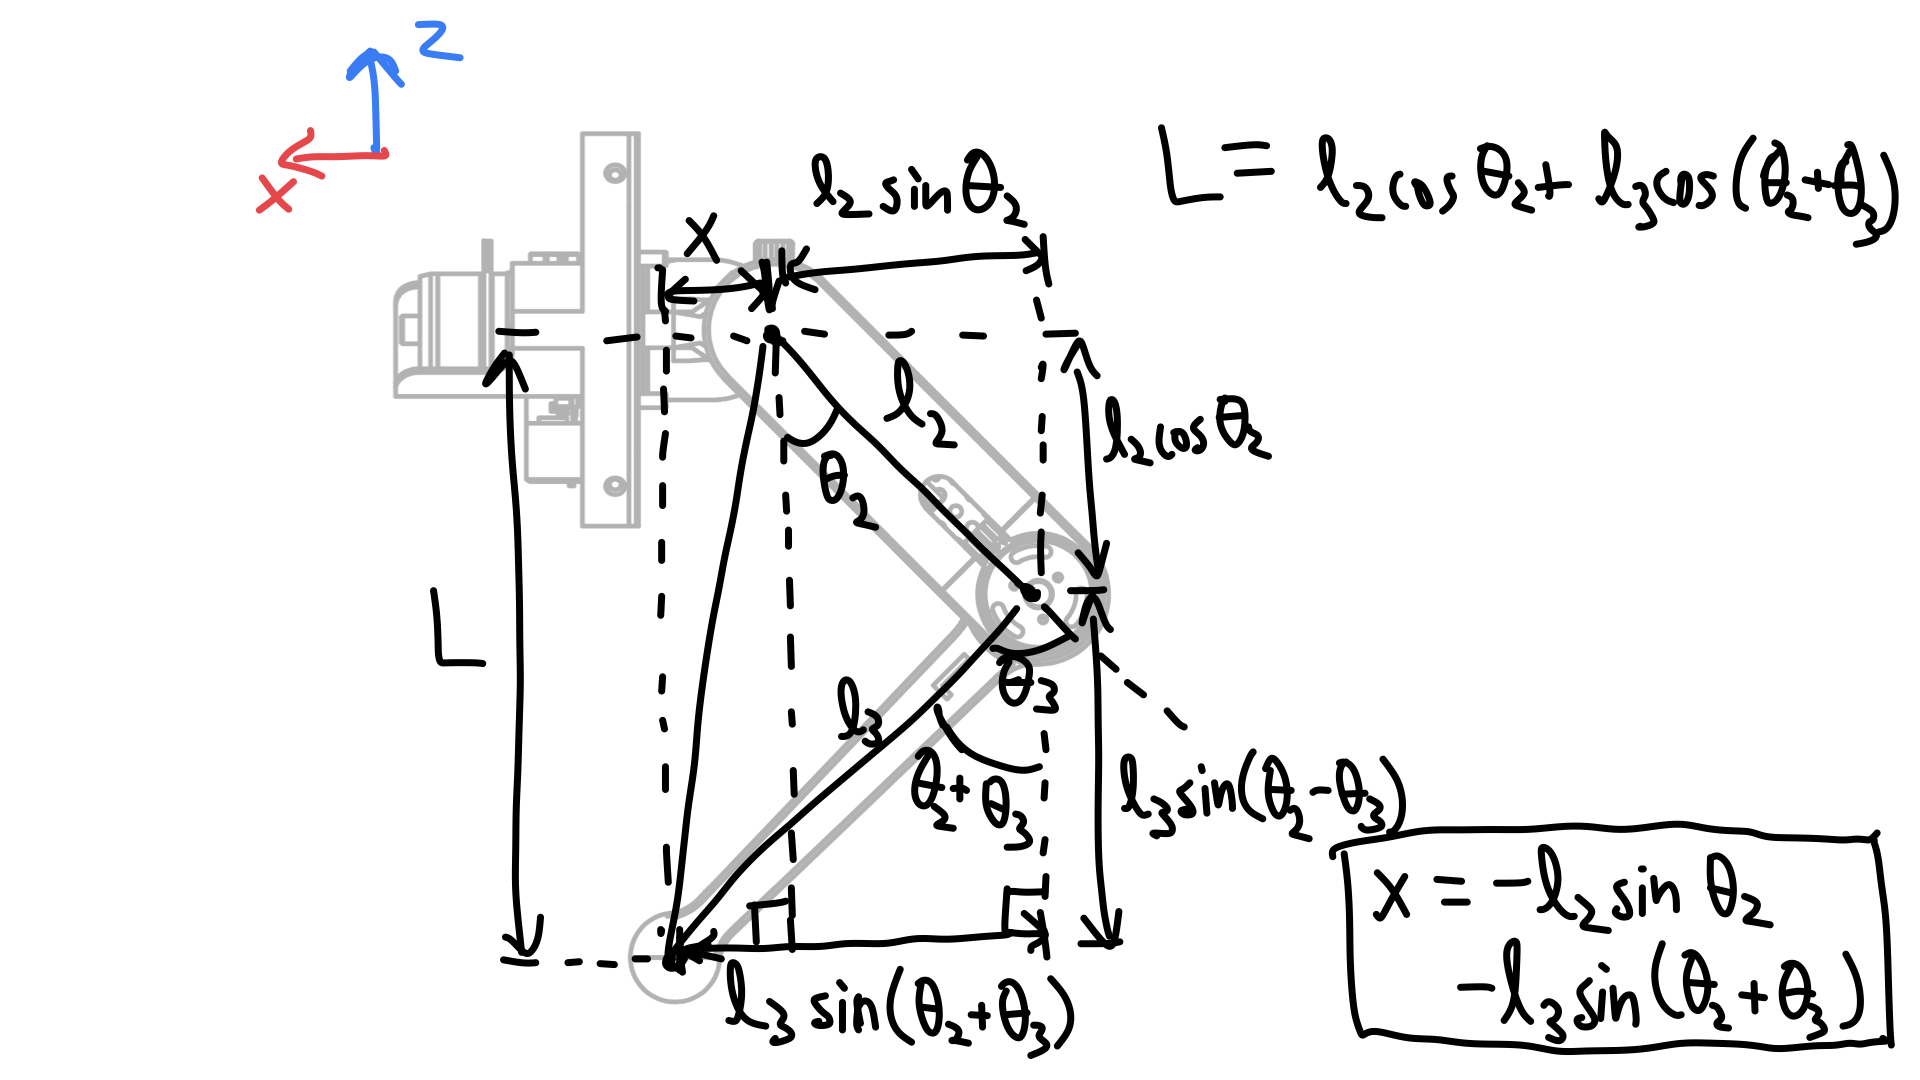 z
x
l₂ sin θ₂
L = l₂ cos θ₂ + l₃ cos (θ₂ + θ₃)
x
l₂
l₂ cos θ₂
θ₂
L
θ₃
l₃
θ₂ + θ₃
l₃ sin(θ₂ - θ₃)
x = -l₂ sin θ₂
-l₃ sin (θ₂ + θ₃)
l₃ sin (θ₂ + θ₃)